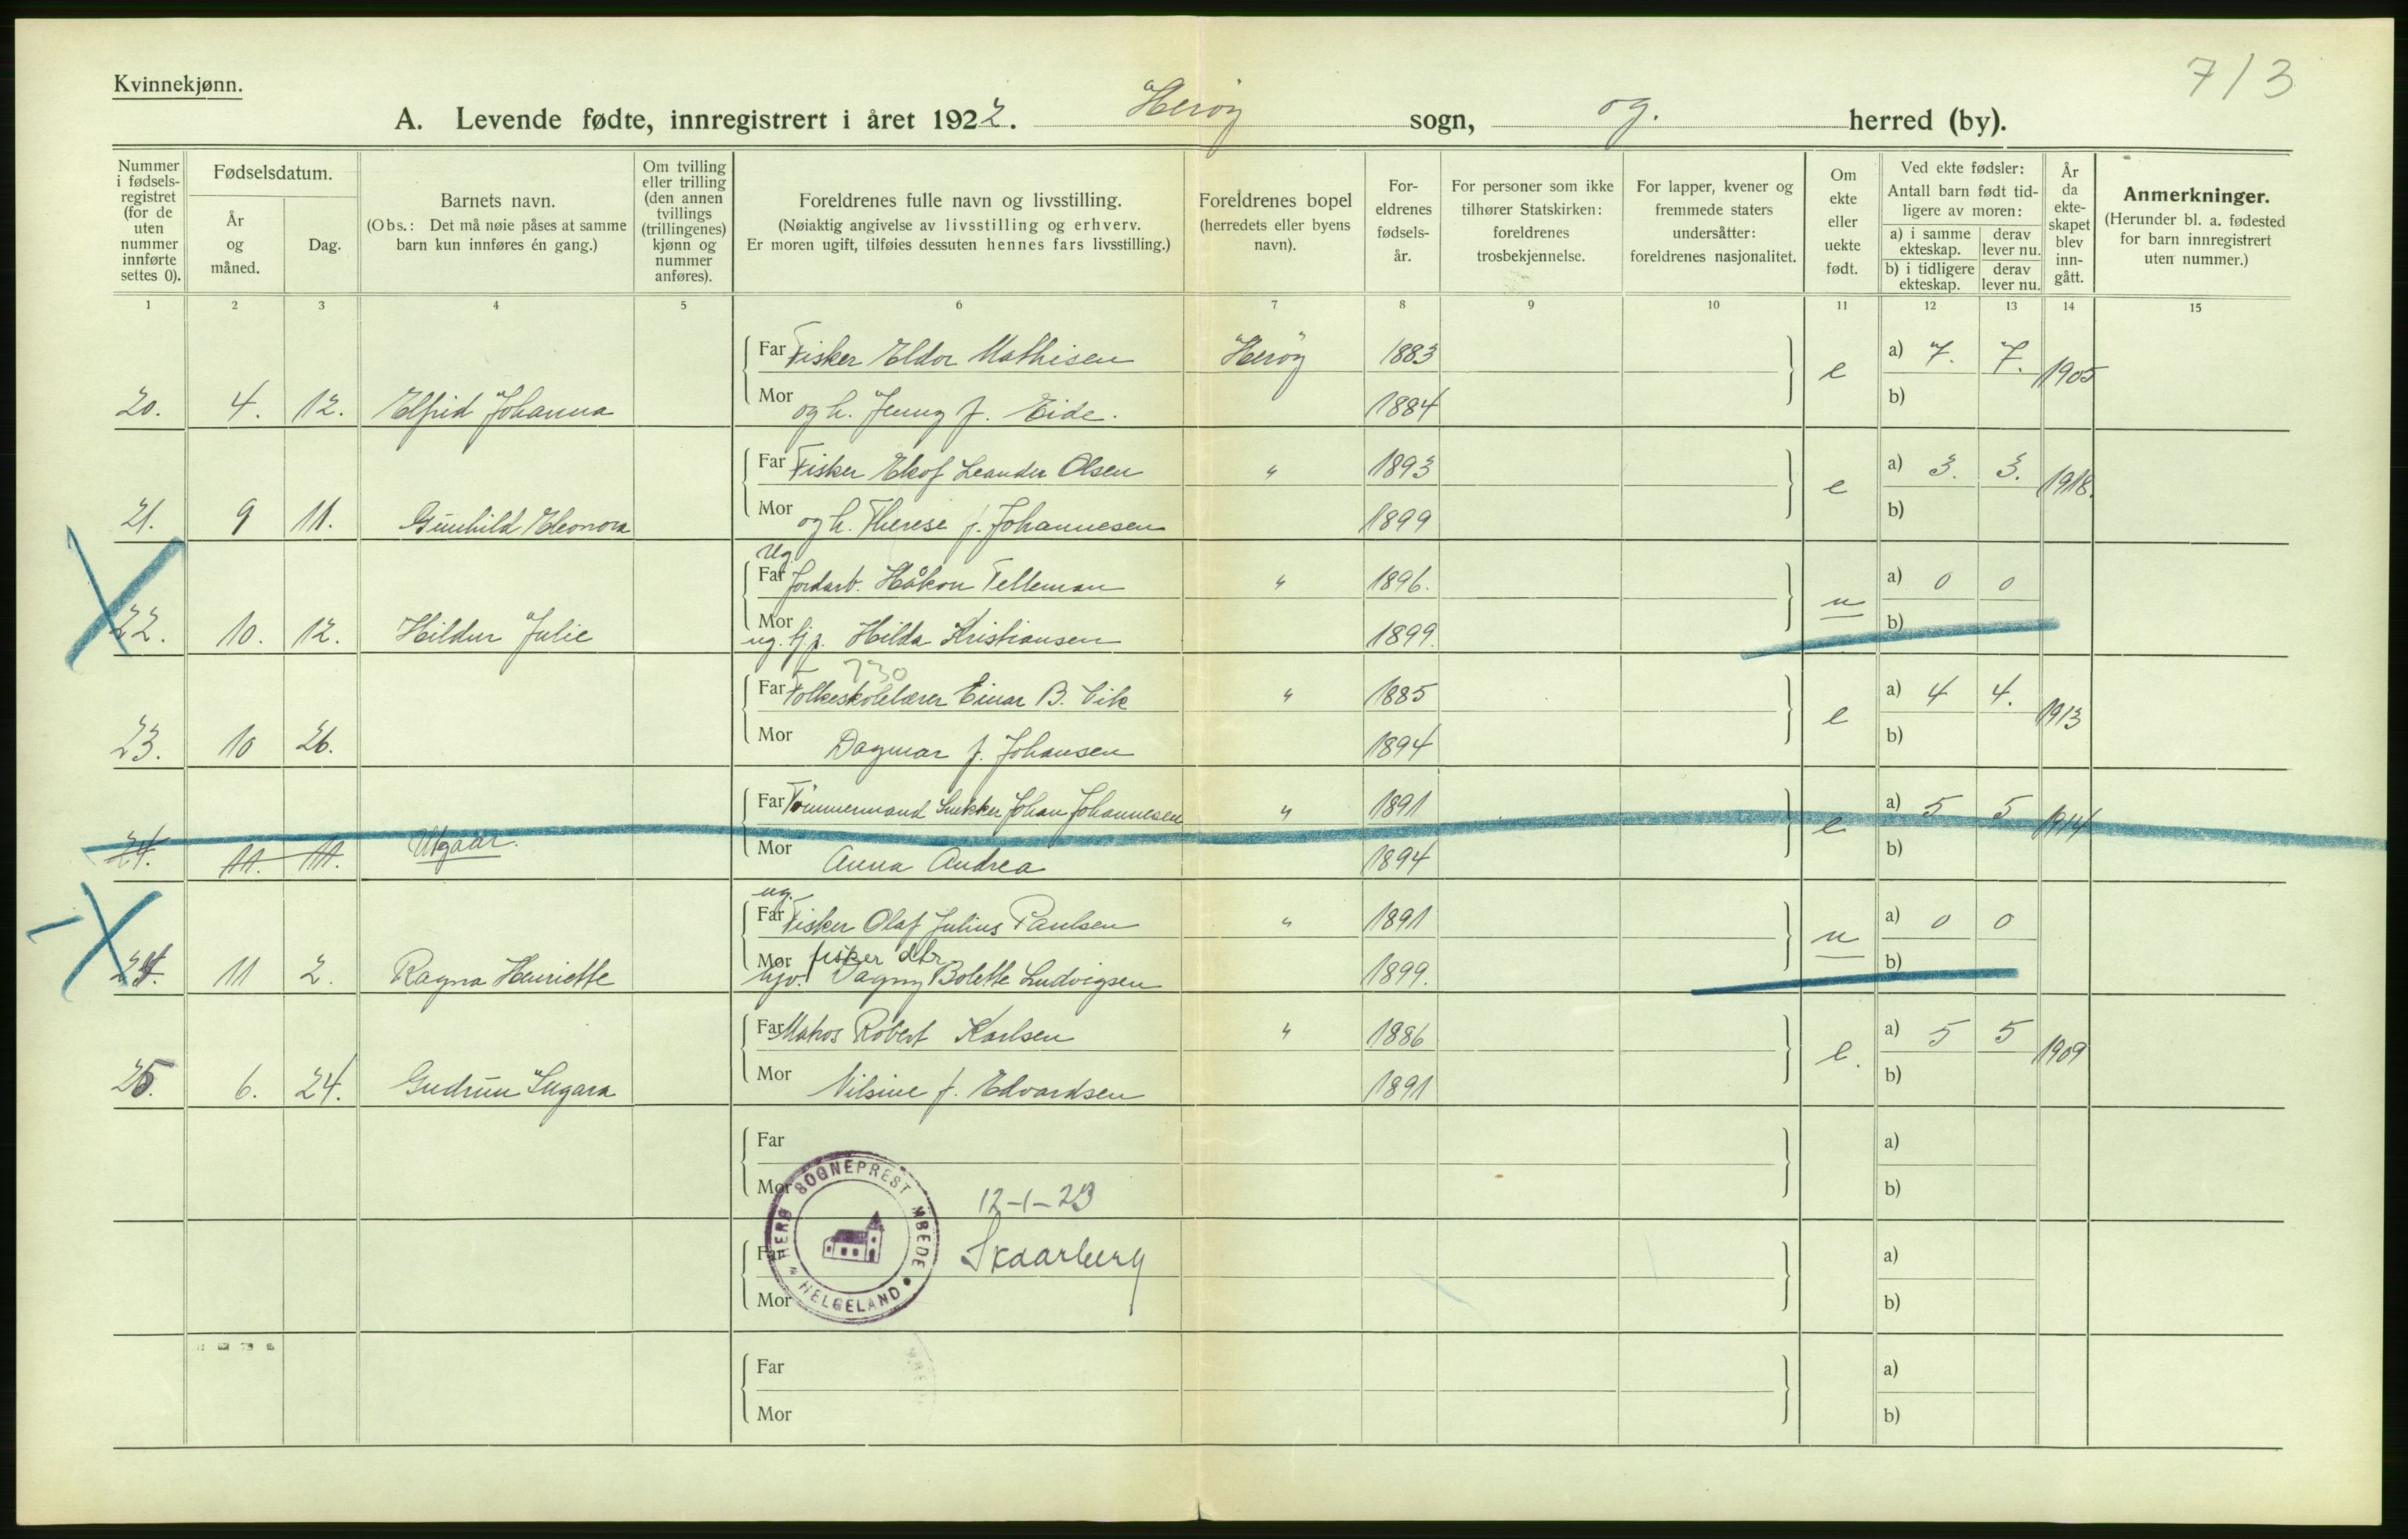 713
Kvinnekjønn.
A. Levende fødte, innregistrert i året 1922. Herøy sogn, og. herred (by).
Nummer i fødsels-registret (for de uten nummer innførte settes 0).
Fødselsdatum.
År og måned.
Dag.
Barnets navn.
(Obs.: Det må nøie påses at samme barn kun innføres én gang.)
Om tvilling eller trilling (den annen tvillings (trillingenes) kjønn og nummer anføres).
Foreldrenes fulle navn og livsstilling.
(Nøiaktig angivelse av livsstilling og erhverv. Er moren ugift, tilføies dessuten hennes fars livsstilling.)
Foreldrenes bopel (herredets eller byens navn).
For-eldrenes fødsels-år.
For personer som ikke tilhører Statskirken: foreldrenes trosbekjennelse.
For lapper, kvener og fremmede staters undersåtter: foreldrenes nasjonalitet.
Om ekte eller uekte født.
Ved ekte fødsler: Antall barn født tid-ligere av moren:
a) i samme ekteskap. derav lever nu.
b) i tidligere ekteskap. derav lever nu.
År da ekte-skapet blev inn-gått.
Anmerkninger.
(Herunder bl. a. fødested for barn innregistrert uten nummer.)
1 2 3 4 5 6 7 8 9 10 11 12 13 14 15
Far Fisker Eldor Mathisen Herøy 1883 e a) 7. 7. 1905
20. 4. 12. Elfrid Johanna Mor og h. Jenny f. Eide. 1884 b)
Far Fisker Ekof Leander Olsen " 1893 e a) 3. 3. 1918.
21. 9 11. Gunhild Eleonora Mor og h. Therese f. Johannesen 1899 b)
Ug
Far Jordarb. Håkon Telleman " 1896. u a) 0 0
22. 10. 12. Hildur Julie Mor ug. tj. p. Hilda Kristiansen 1899. b)
730
Far Folkeskolelærer Einar B. Vik " 1885 e a) 4 4. 1913
23. 10 26. Mor Dagmar f. Johansen 1894 b)
Far Tømmermand Snekker Johan Johannesen " 1891 e a) 5 5 1914
24. 11. 11. Utgaar. Mor Anna Andrea 1894 b)
ug.
Far Fisker Olaf Julius Paulsen " 1891 u a) 0 0
fisker dtr
24. 11 2. Ragna Henriette Mor hjv. Dagny Bolette Ludvigsen 1899. b)
Far Matros Robert Karlsen " 1886 e. a) 5 5 1909
25. 6. 24. Gudrun Sugara Mor Nilsine f. Edvardsen 1891 b)
Far a)
Mor b)
12-1-23
Far Skaarberg a)
Mor b)
HERØ SOGNEPREST MBEDE HELGELAND
Far a)
Mor b)